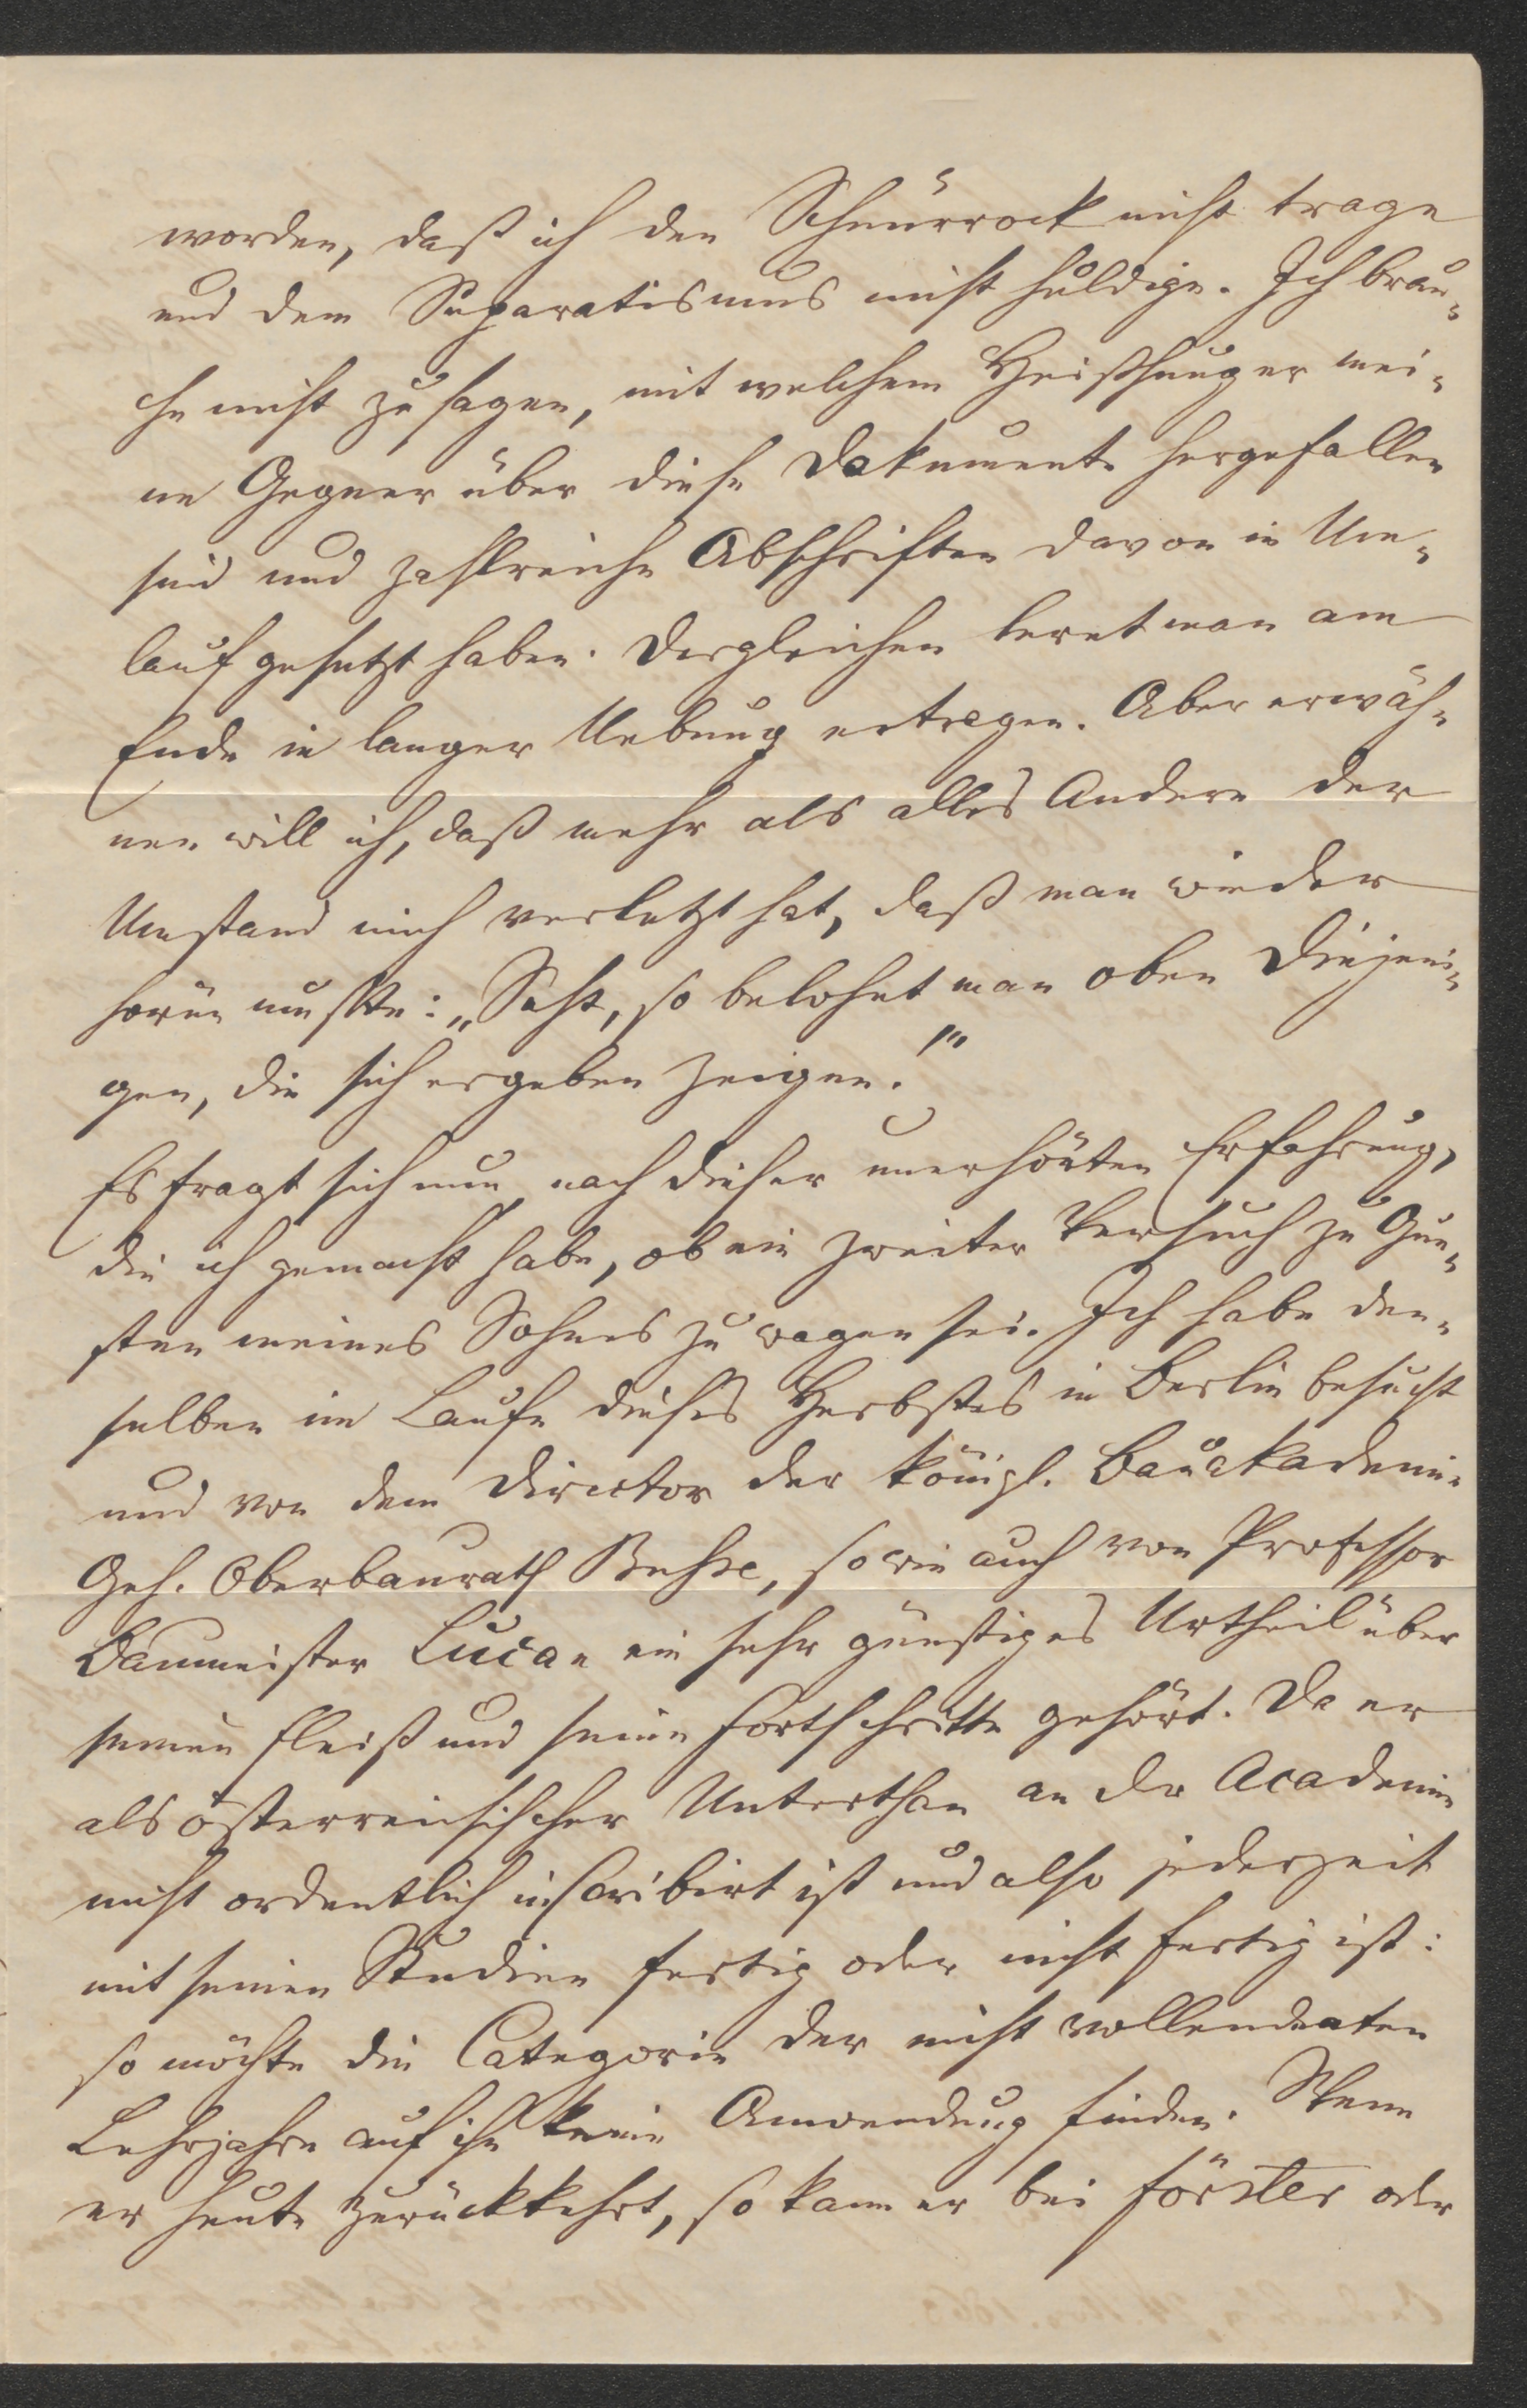 worden, daß ich den Schnürrock nicht trage
und dem Separatismus nicht huldige. Ich brau-
che nicht zu sagen, mit welchem Heißhunger mei-
ne Gegner über diese Dokumente hergefallen
sind und zahlreiche Abschriften davon in Um-
lauf gesetzt haben. Dergleichen lernt man am
Ende in langer Uebung ertragen. Aber erwäh-
nen will ich, daß mehr als alles Andere der
Umstand mich verletzt hat, daß man wieder
hören mußte: „Seht, so belohnt man oben diejeni-
gen, die sich ergeben zeigen!"
Es fragt sich nun, nach dieser unerhörten Erfahrung,
die ich gemacht habe, ob ein zweiter Versuch zu Gun-
sten meines Sohnes zu wagen sei. Ich habe den-
selben im Laufe dieses Herbstes in Berlin besucht
und von dem Director der königl. Bauakademie
Geh. Oberbaurath Busse, so wie auch von Professor
Baumeister Lucae ein sehr günstiges Urtheil über
seinen Fleiß und seine Fortschritte gehört. Da er
als österreichischer Unterthan an der Academie
nicht ordentlich inscribirt ist und also jederzeit
mit seinen Studien fertig oder nicht fertig ist:
so möchte die Categorie der nicht vollendeten
Lehrjahre auf ihn keine Anwendung finden. Wenn
er heute zurückkehrt, so kann er bei Förster oder